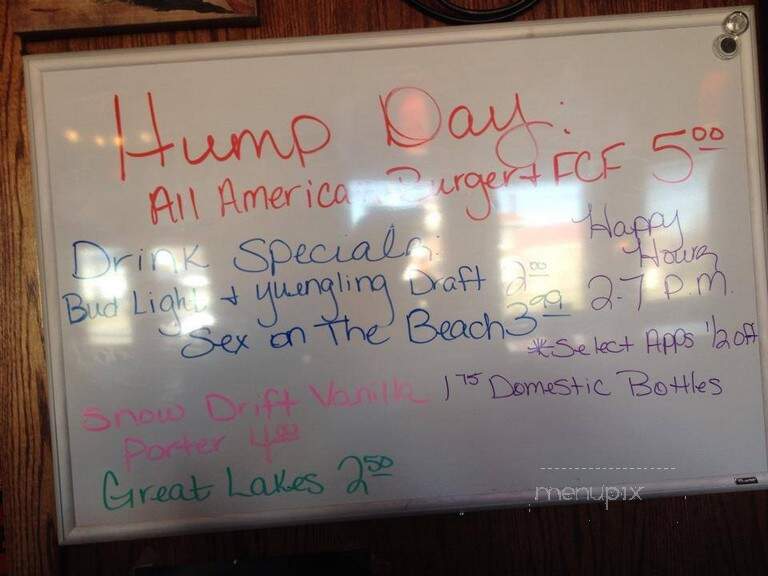 Hump Day:
All American Burger + FCF 5.00
Drink Specials:
Bud Light + yuengling Draft 2.00
Sex on The Beach 3.99
Snow Drift Vanilla
Porter 4.00
Great Lakes 2.50
Happy
Hours
2-7 P.M.
*Select Apps 1/2 off
1.75 Domestic Bottles
menupix